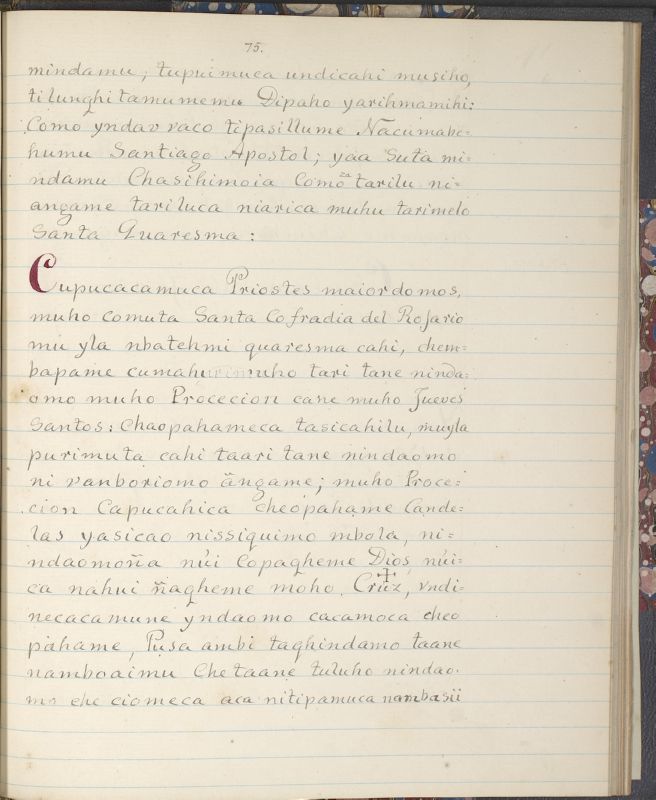 75.
mindamu, tupuimuca undicahi musiho,
tilunghitamumemu Dipaho yarihmamihi:
Como yndav raco tipasillume Nacumabe=
humu Santiago Apostol; yaa Suta mi=
ndamu Chasihimoia Como za tarilu ni=
angame tariluca niarica muhu tarimelo
Santa Quaresma:
Cupucacamuca Priostes maiordomos,
muho comuta Santa Cofradia del Rosario
mu yla nbatehmi quaresma cahi, chem=
bapame tari tane ninda=
omo muho Procecion cane muho Jueves
Santos: Chaopahameca tasicahilu, muyla
purimuta cahi taari tane nindaomo
ni vanboriomo ãngame; muho Proce=
cion Capucahica cheopahame Cande=
las yasicao nissiquimo mbola, ni=
ndaomoña nùi Copagheme Dios, nùi=
ca nahui ñagheme moho. Cruz, vndi=
necacamune yndaomo cacamoca cheo
pahame, Pusa ambi taghindamo taane
namboaimu Che taane tuluho nindao.
mo che ciomeca aca nitipamuca nambasii